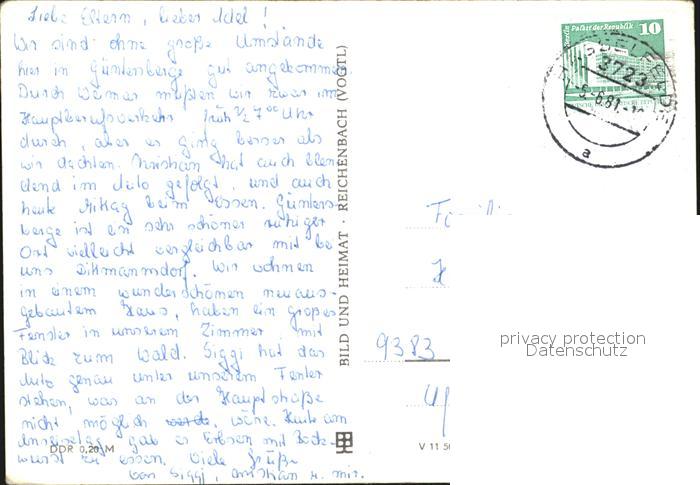 Liebe Eltern, lieber Adel!
Wir sind ohne große Umstände
hier in Güntersberge gut angekommen
Durch Weimar mußten wir zwar im
Hauptberufsverkehr früh ½ 7⁰⁰ Uhr
durch, aber es ging besser als
wir dachten. Christian hat auch blen
dend im Auto gefolgt, und auch
heute Mittag beim Essen. Günters-
berge ist ein sehr schöner ruhiger
Ort vielleicht vergleichbar mit bei
uns Dittmannsdorf. Wir wohnen
in einem wunderschönen neuaus-
gebautem Haus, haben ein großes
Fenster in unserem Zimmer mit
Blick zum Wald. Siggi hat das
Auto genau unter unserem Fenster
stehen, was an der Hauptstraße
nicht möglich wäre. Heute am
Anreisetag gab es Erbsen mit Bock-
wurst zu essen. Viele Grüße
von Siggi, Christian u. mir.
DDR 0,20 M
BILD UND HEIMAT · REICHENBACH (VOGTL)
V 11 50
Berlin Palast der Republik 10
3723
-5.-6.81.-
a
9383
privacy protection
Datenschutz